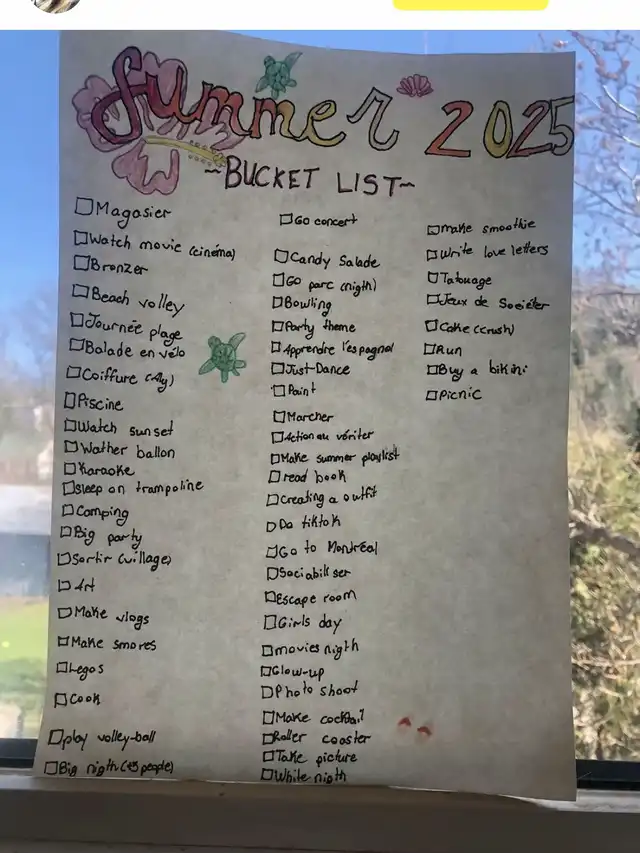 Summer 2025
~BUCKET LIST~
Magasier
Watch movie (cinéma)
Bronzer
Beach volley
Journée plage
Balade en vélo
Coiffure (Aly)
Piscine
Watch sunset
Wather ballon
Karaoke
Sleep on trampoline
Camping
Big party
Sortir (village)
Art
Make vlogs
Make smores
Legos
Cook
play volley-ball
Big nigth (+5 people)
Go concert
Candy Salade
Go parc (nigth)
Bowling
Party theme
Apprendre l'espagnol
Just-Dance
Paint
Marcher
Action ou vériter
Make summer playlist
read book
Creating a outfit
Do tiktok
Go to Montréal
Sociabiliser
Escape room
Girls day
movies nigth
Glow-up
Photo shoot
Make cocktail
Roller coaster
Take picture
White nigth
make smoothie
Write love letters
Tatouage
Jeux de Sociéter
Cake (crush)
Run
Buy a bikini
Picnic